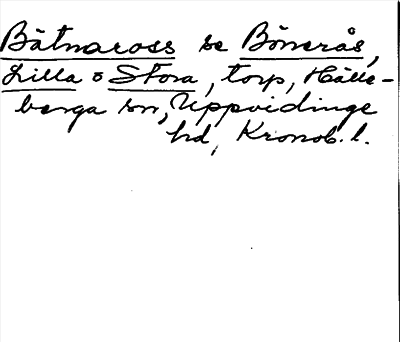 Båtnaross se Bönerås,
Lilla o Stora, torp, Hälle-
berga sn, Uppvidinge
hd, Kronob. l.